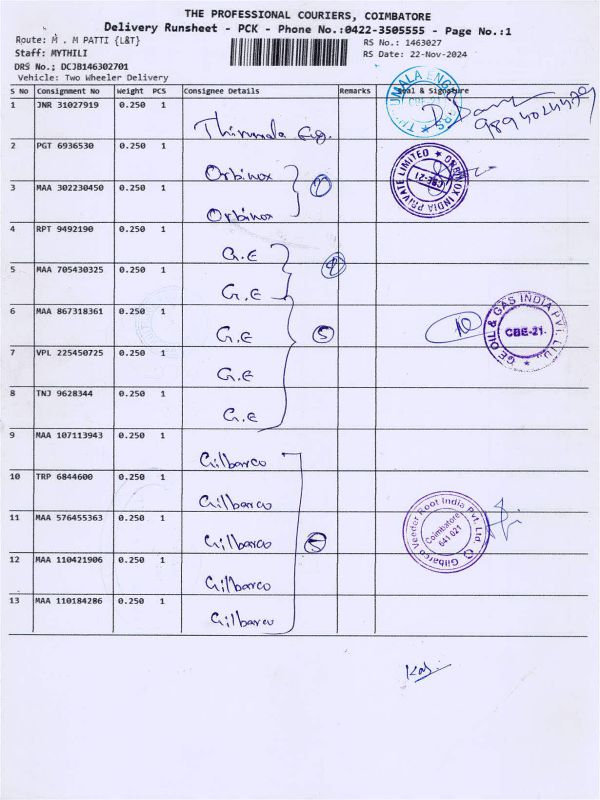 THE PROFESSIONAL COURIERS, COIMBATORE
Delivery Runsheet - PCK - Phone No.:0422-3505555 - Page No.:1
Route: M . M PATTI {L&T}
RS No.: 1463027
Staff: MYTHILI
RS Date: 22-Nov-2024
DRS No.; DCJB146302701
Vehicle: Two Wheeler Delivery
S No Consignment No Weight PCS Consignee Details Remarks Seal & Signature
1 JNR 31027919 0.250 1 Thirumala Eng.
2 PGT 6936530 0.250 1 Orbinox
3 MAA 302230450 0.250 1 Orbinox
ORBINOX INDIA PRIVATE LIMITED CBE-21
4 RPT 9492190 0.250 1 G.E
5 MAA 705430325 0.250 1 G.E
6 MAA 867318361 0.250 1 G.E 5
GE OIL & GAS INDIA PVT. LTD. CBE-21.
7 VPL 225450725 0.250 1 G.E
8 TNJ 9628344 0.250 1 G.E
9 MAA 107113943 0.250 1 Gilbarco
10 TRP 6844600 0.250 1 Gilbarco
11 MAA 576455363 0.250 1 Gilbarco
Gilbarco Veeder Root India Pvt. Ltd. Coimbatore 641 021
12 MAA 110421906 0.250 1 Gilbarco
13 MAA 110184286 0.250 1 Gilbarco